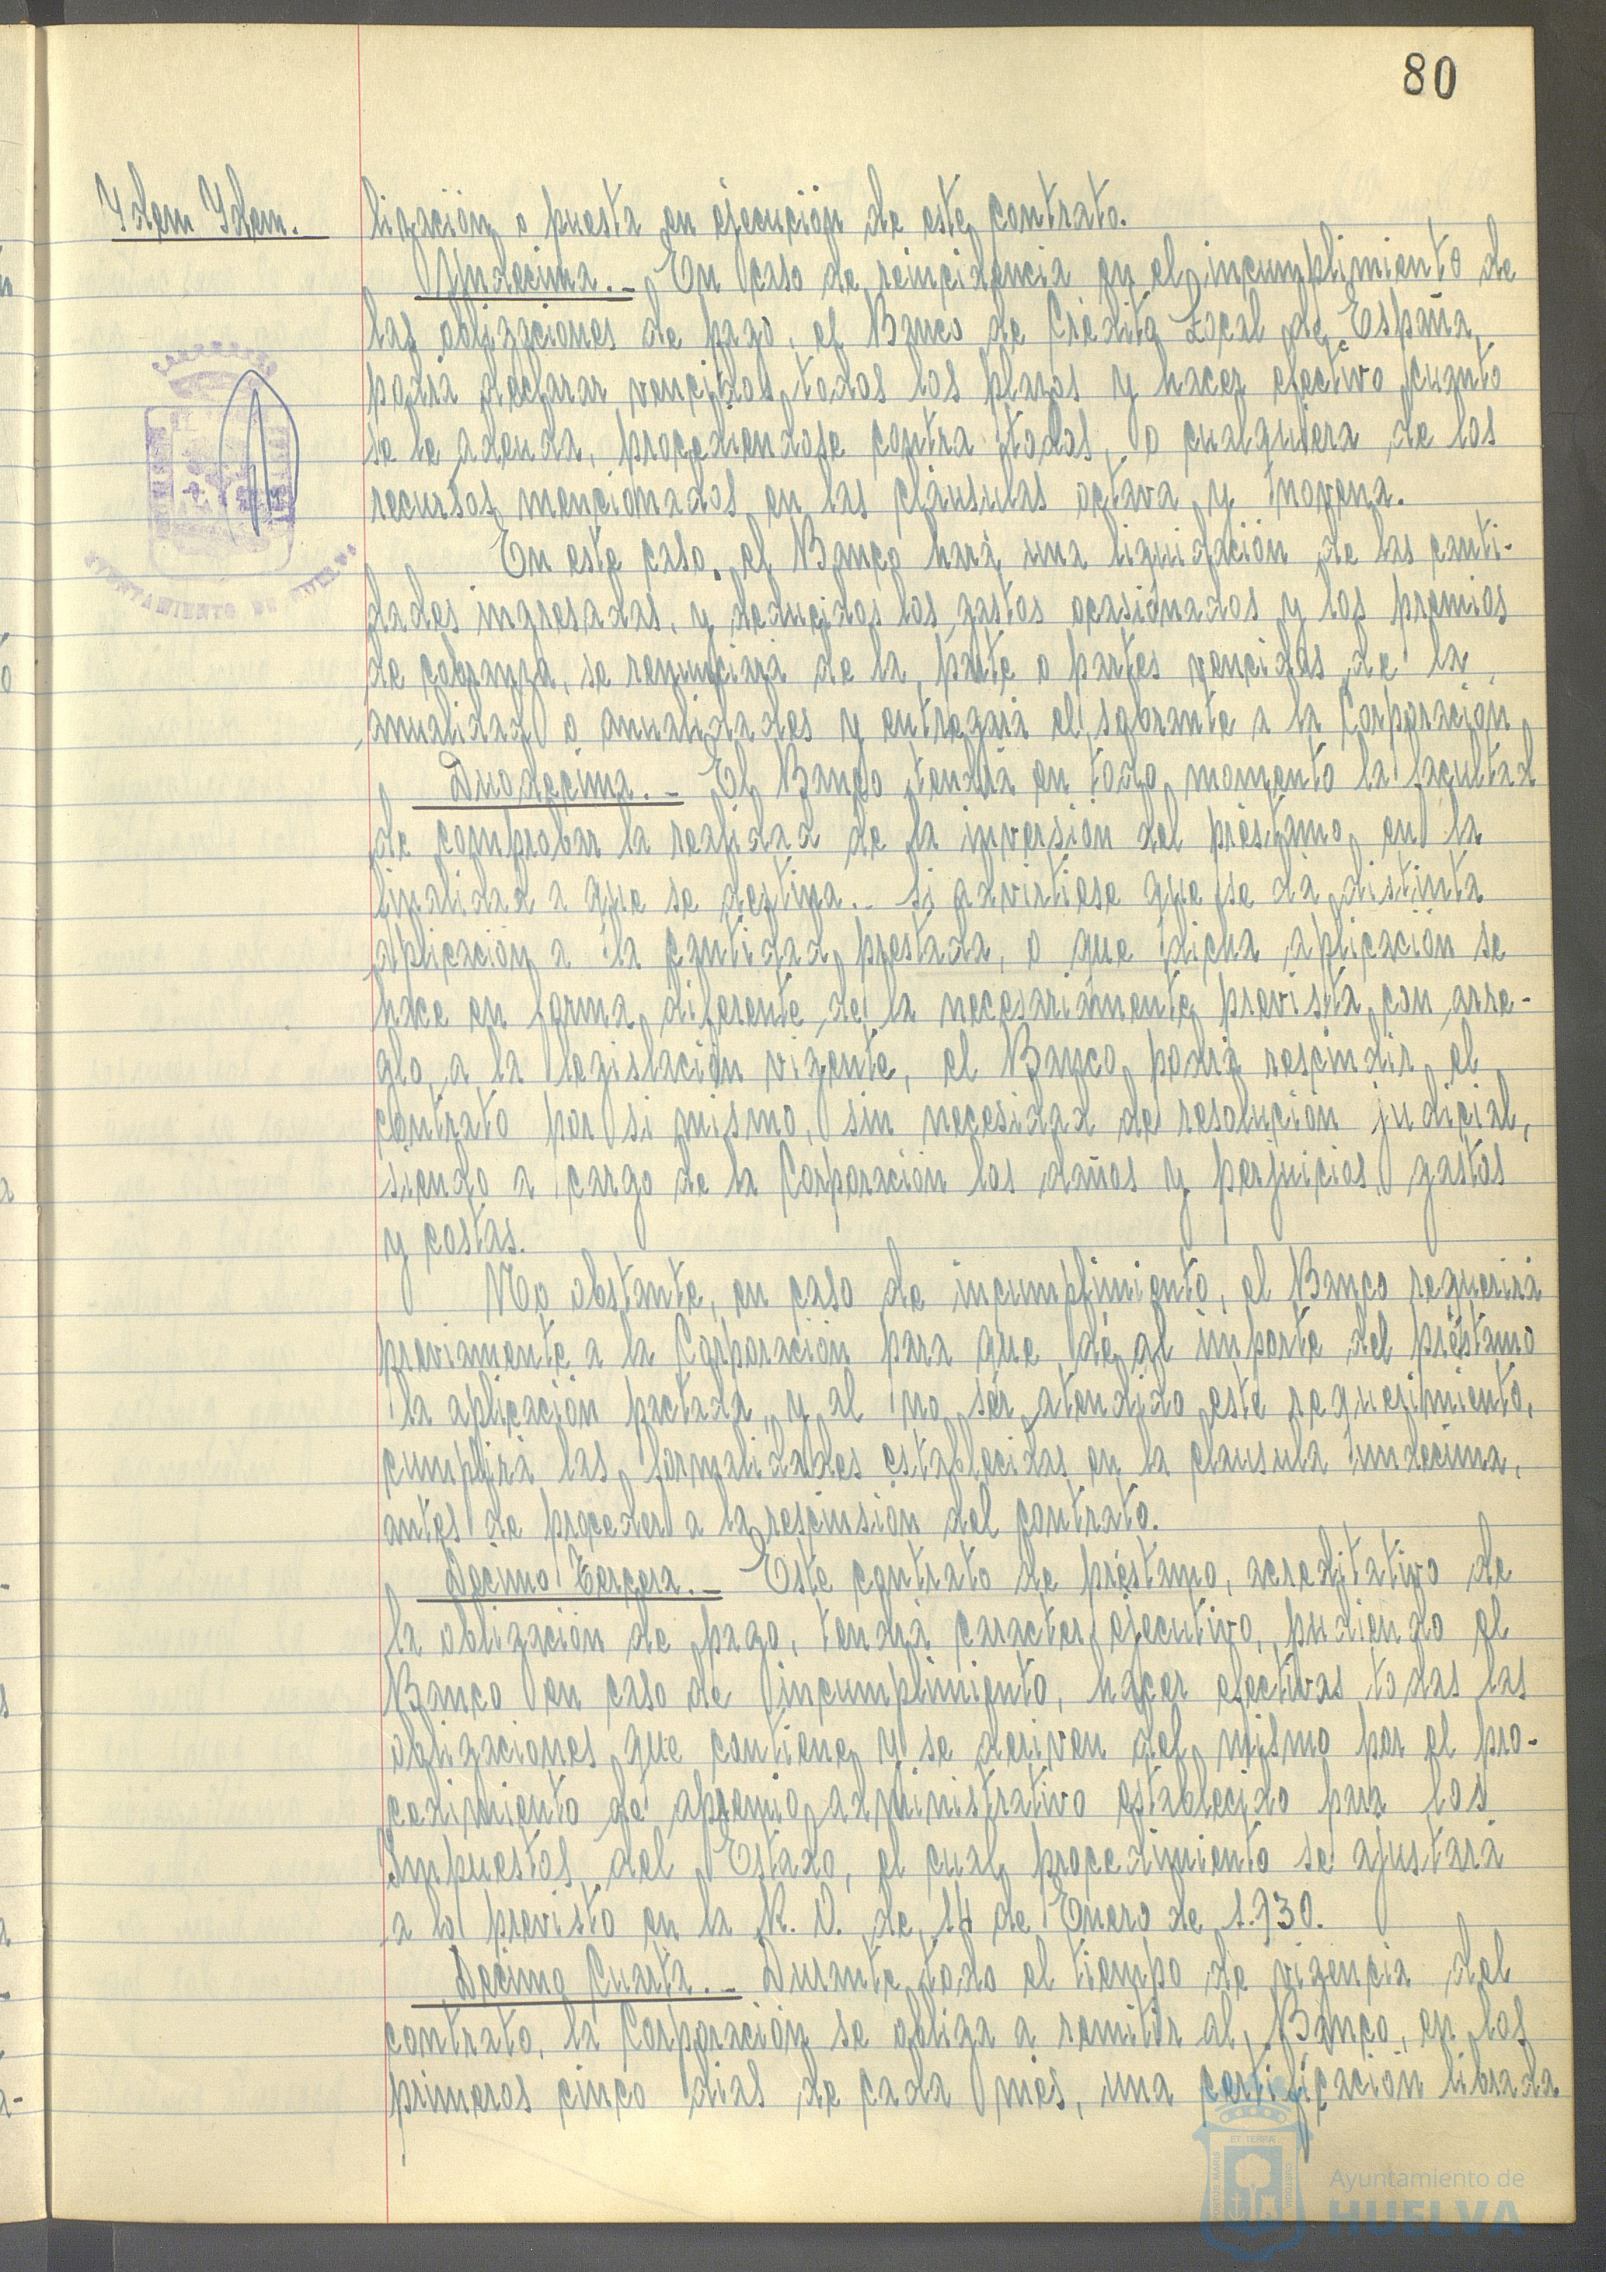 80
Ydem Ydem.
lización o puesta en ejecución de este contrato.
Undecima.- En caso de reincidencia en el incumplimiento de
las obligaciones de pago, el Banco de Crédito Local de España,
podrá declarar vencidos todos los plazos y hacer efectivo cuanto
se le adeuda, procediendose contra todos, o cualquiera de los
recursos mencionados en las cláusulas octava y novena.
En este caso, el Banco hará una liquidación de las canti-
dades ingresadas, y deducidos los gastos ocasionados y los premios
de cobranza, se de la parte o partes vencidas de la
anualidad o anualidades y entregará el sobrante a la Corporación
Duodecima.- El Banco tendrá en todo momento la facultad
de comprobar la realidad de la inversión del préstamo en la
finalidad a que se destina.- Si advirtiese que se dá distinta
aplicación a la cantidad prestada, o que dicha aplicación se
hace en forma diferente de la necesariamente prevista con arre-
glo a la legislación vigente, el Banco podrá rescindir el
contrato por si mismo, sin necesidad de resolución judicial,
siendo a cargo de la Corporación los daños y perjuicios, gastos
y costas.
No obstante, en caso de incumplimiento, el Banco requerirá
previamente a la Corporación para que dé al importe del préstamo
la aplicación pactada, y al no ser atendido este requerimiento,
cumplirá las formalidades establecidas en la cláusula undécima,
antes de proceder a la rescinsión del contrato.
Décimo Tercera.- Este contrato de préstamo, acreditativo de
la obligación de pago, tendrá caracter ejecutivo, pudiendo el
Banco en caso de incumplimiento, hacer efectivas todas las
obligaciones que contiene y se deriven del mismo por el pro-
cedimiento de apremio administrativo establecido para los
Impuestos del Estado, el cual procedimiento se ajustará
a lo previsto en la R. O. de 14 de Enero de 1.930.
Décimo Cuarta.- Durante todo el tiempo de vigencia del
contrato, la Corporación se obliga a remitir al Banco, en los
primeros cinco días de cada mes, una certificación librada
AYUNTAMIENTO DE HUELVA
Ayuntamiento de
HUELVA